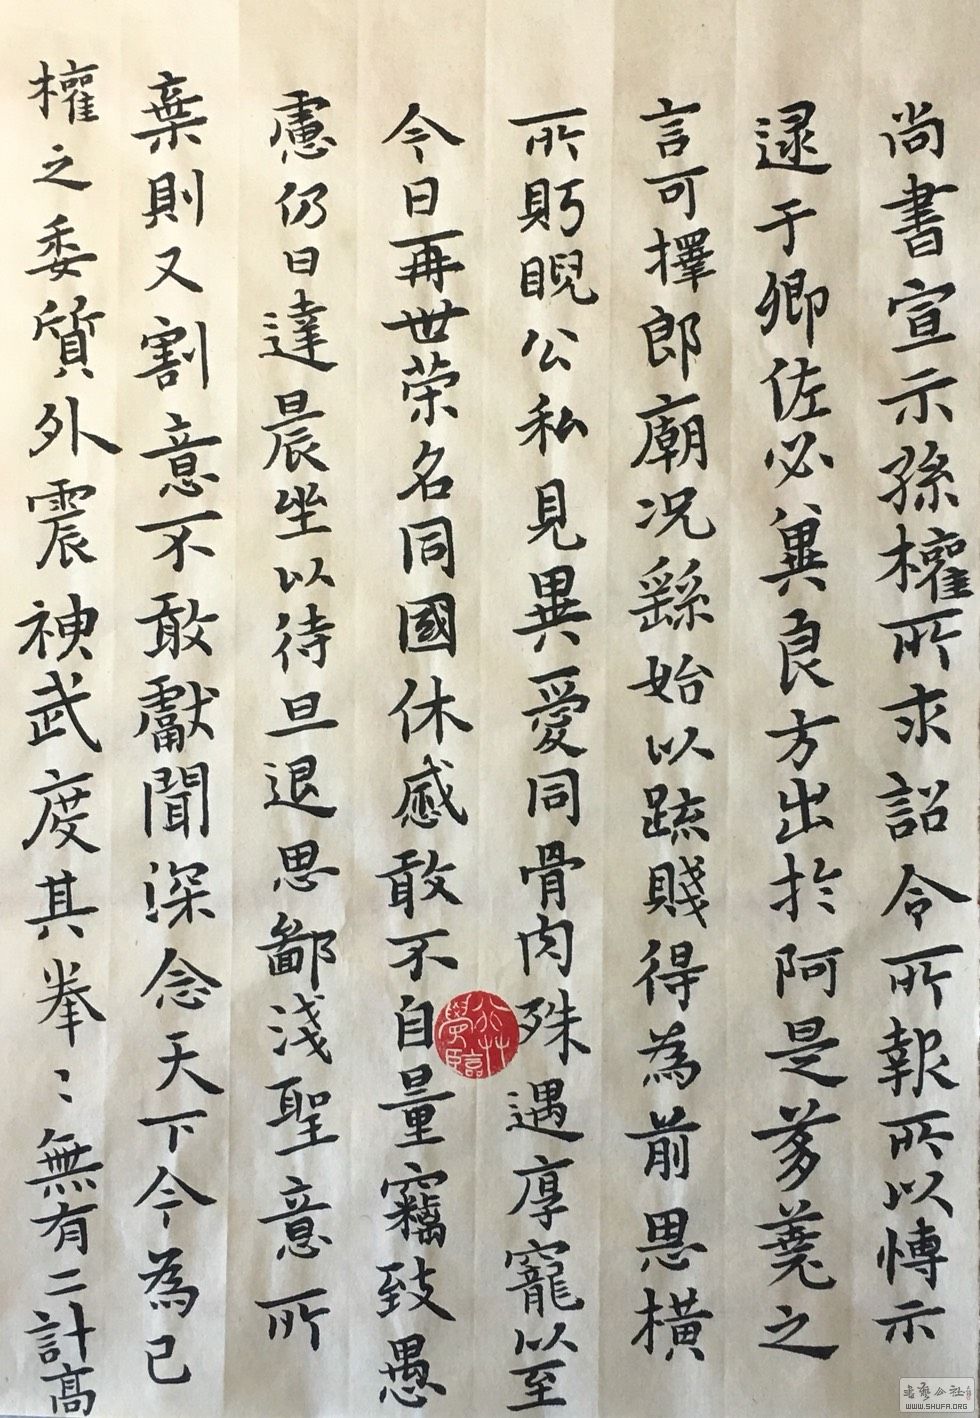 尚書宣示孫權所求詔令所報所以博示
逮于卿佐必冀良方出於阿是芻蕘之
言可擇郎廟況繇始以疏賤得為前恩橫
所眄睨公私見異愛同骨肉殊遇厚寵以至
今日再世荣名同國休慼敢不自量竊致愚
慮仍日達晨坐以待旦退思鄙淺聖意所
棄則又割意不敢獻聞深念天下今為已
權之委質外震神武度其拳〻無有二計高
書藝公社
WWW.SHUFA.ORG